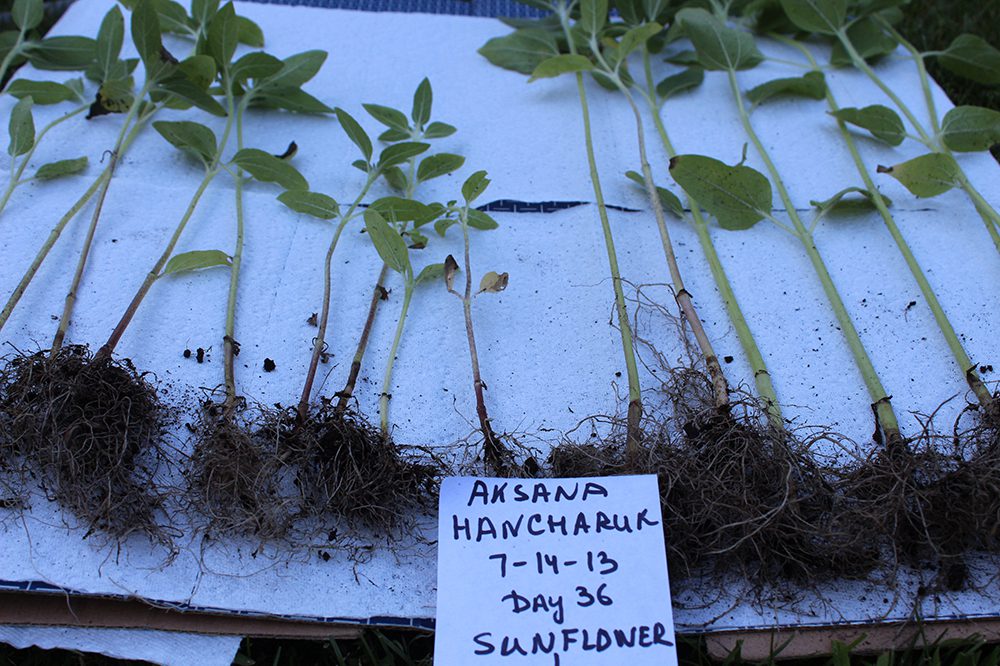 AKSANA
HANCHARUK
7-14-13
DAY 36
SUNFLOWER